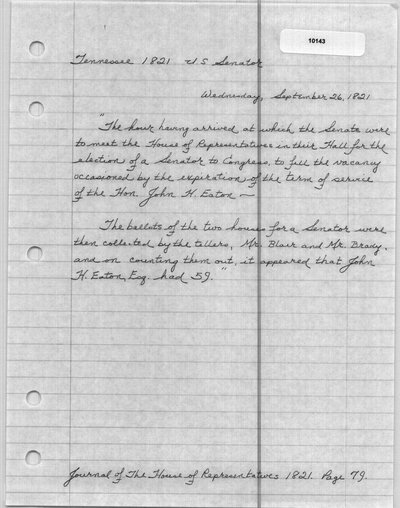 10143
Tennessee 1821 U S Senator
Wednesday, September 26, 1821
"The hour having arrived at which the Senate were
to meet the House of Representatives in their Hall for the
election of a Senator to Congress, to fill the vacancy
occasioned by the expiration of the term of service
of the Hon. John H. Eaton ~
The ballots of the two houses for a Senator were
then collected by the tellers, Mr. Blair and Mr. Brady,
and on counting them out, it appeared that John
H. Eaton, Esq. had 59."
Journal of The House of Representatives 1821. Page 79.